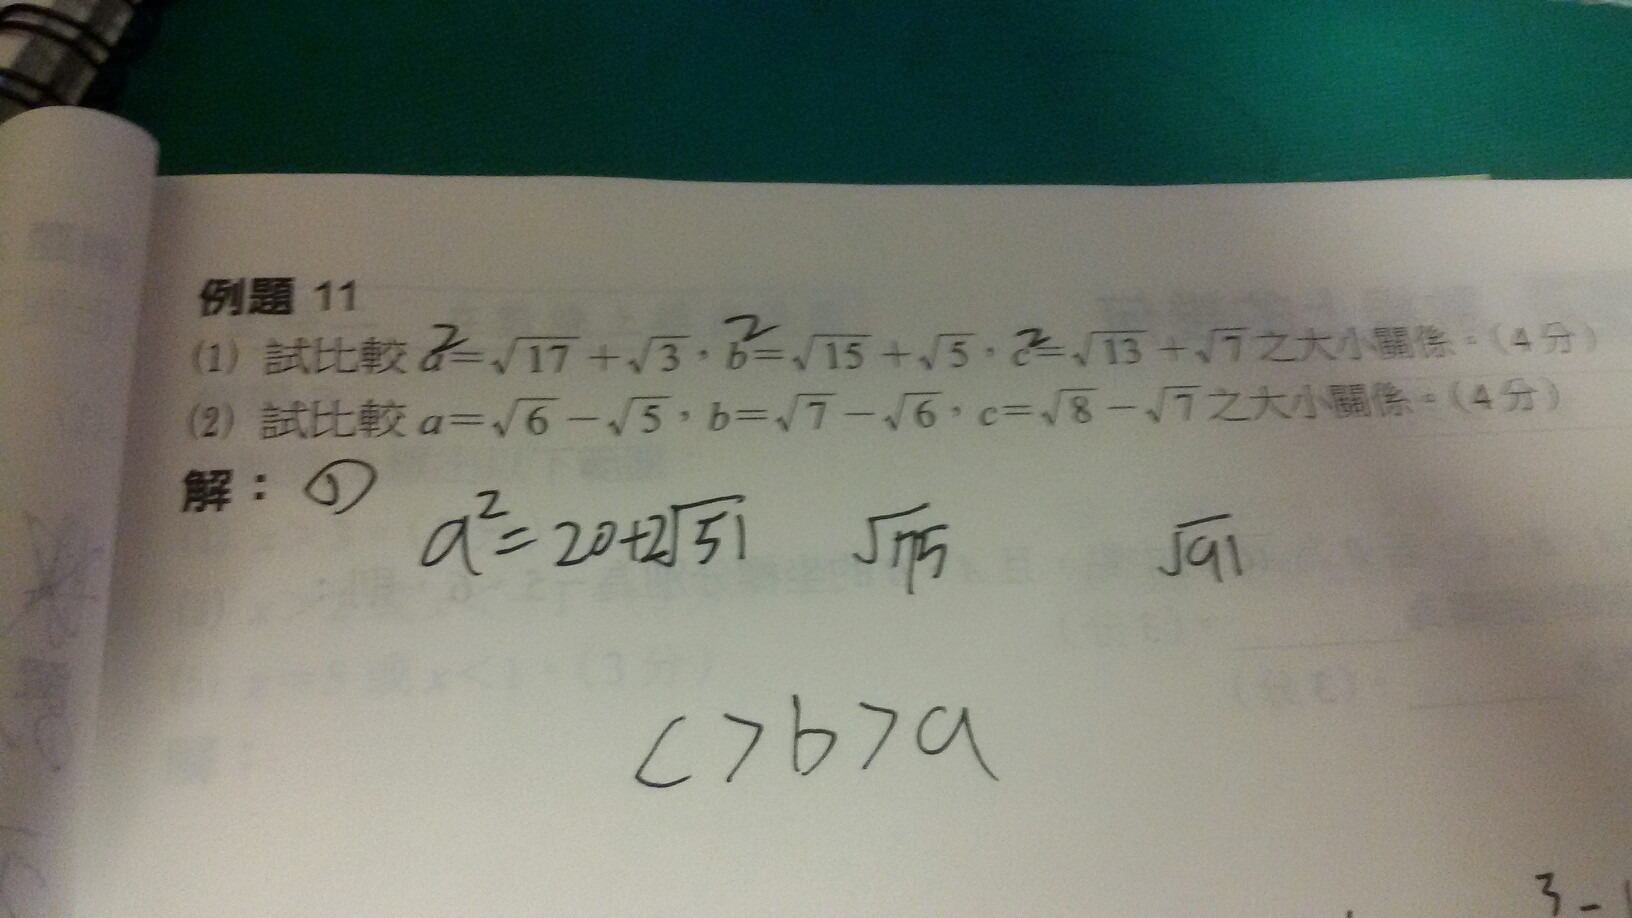 例題 11
(1) 試比較 a²=√17+√3,b²=√15+√5,c²=√13+√7之大小關係。(4分)
(2) 試比較 a=√6-√5,b=√7-√6,c=√8-√7之大小關係。(4分)
解:①
a²=20+2√51 √75 √91
c>b>a
3-